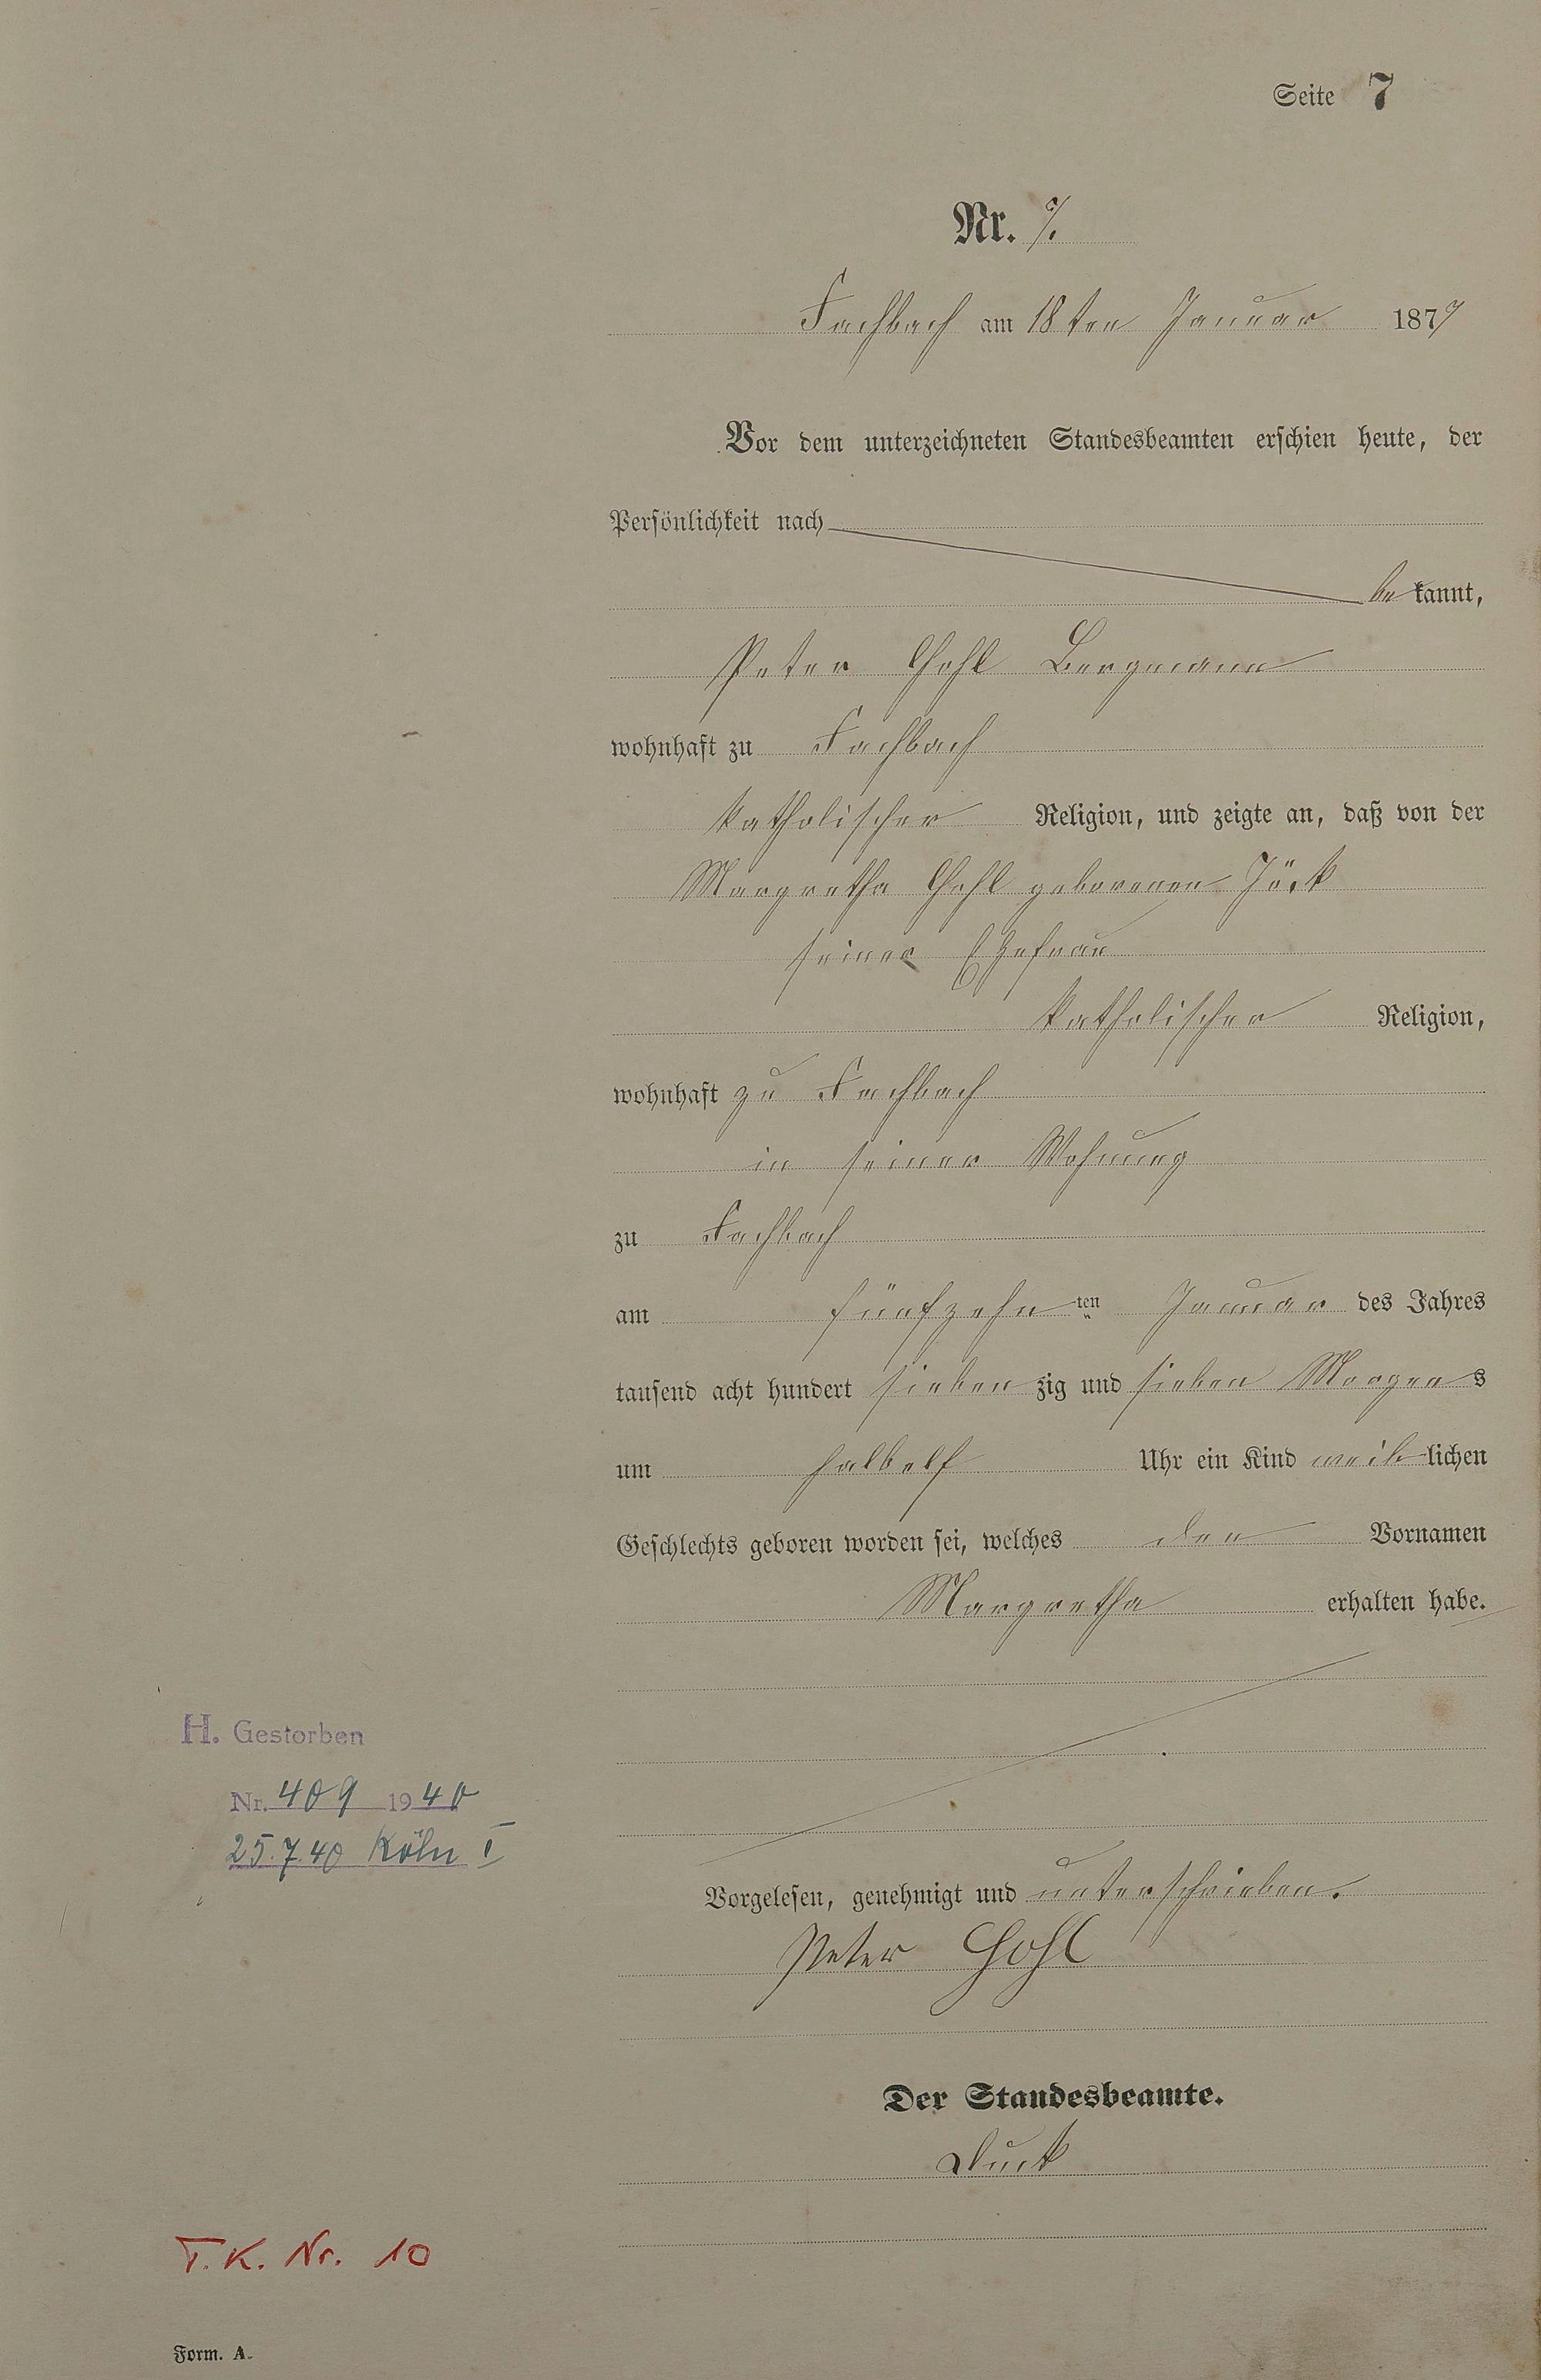 Seite 7
Nr. 7.
Fachbach am 18ten Januar 1877
Vor dem unterzeichneten Standesbeamten erschien heute, der
Persönlichkeit nach
bekannt,
Peter Gohl Bergmann
wohnhaft zu Fachbach
katholischer Religion, und zeigte an, daß von der
Margretha Gohl geborenen Jöck
seiner Ehefrau
katholischer Religion,
wohnhaft zu Fachbach
in seiner Wohnung
zu Fachbach
am fünfzehnten Januar des Jahres
tausend acht hundert siebenzig und sieben Morgens
um halb elf Uhr ein Kind weiblichen
Geschlechts geboren worden sei, welches den Vornamen
Margretha erhalten habe.
H. Gestorben
Nr. 409 1940
25.7.40 Köln I
Vorgelesen, genehmigt und unterschrieben.
Peter Gohl
Der Standesbeamte.
T. K. Nr. 10
Form. A.